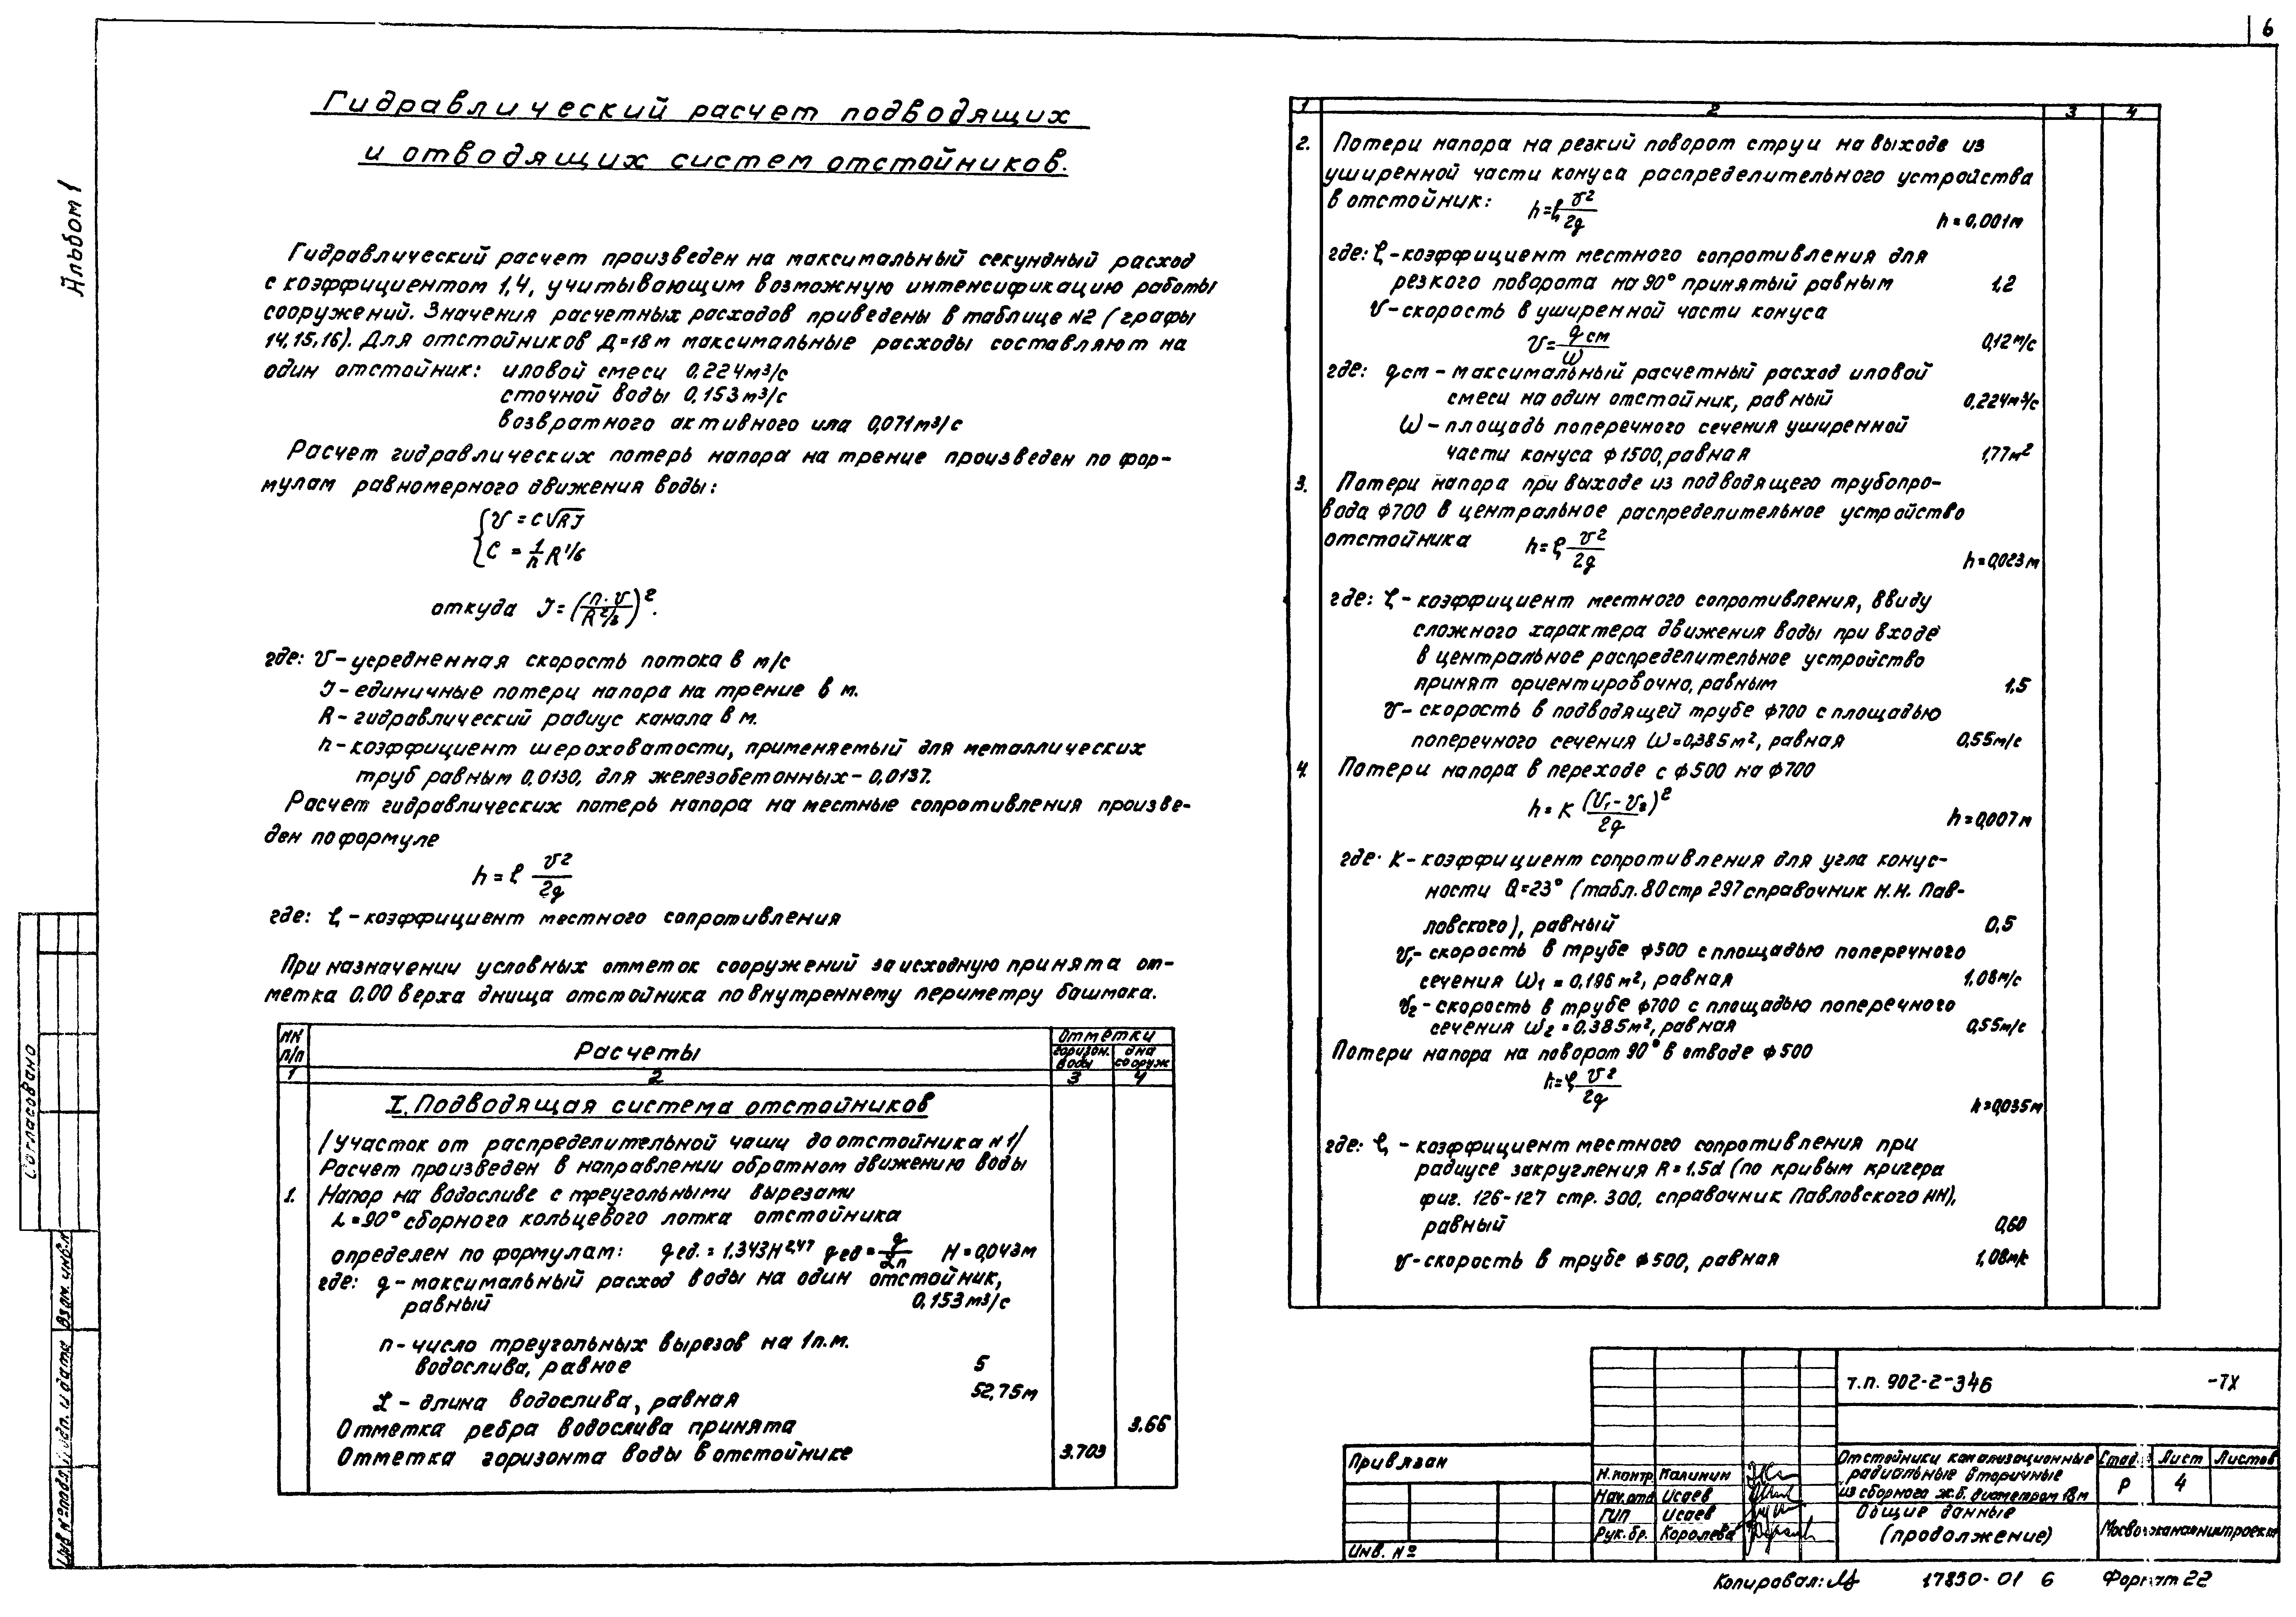 6
Альбом 1
Гидравлический расчет подводящих
и отводящих систем отстойников.
Гидравлический расчет произведен на максимальный секундный расход
с коэффициентом 1,4, учитывающим возможную интенсификацию работы
сооружений. Значения расчетных расходов приведены в таблице N2 (графы
14,15,16). Для отстойников Д=18м максимальные расходы составляют на
один отстойник: иловой смеси 0.224м³/с
сточной воды 0,153м³/с
возвратного активного ила 0,071м³/с
Расчет гидравлических потерь напора на трение произведен по фор-
мулам равномерного движения воды:
v = C√RJ
C = 1/n R^1/6
откуда J = (n·v/R^2/3)².
где: v - усредненная скорость потока в м/с
J - единичные потери напора на трение в м.
R - гидравлический радиус канала в м.
n - коэффициент шероховатости, применяемый для металлических
труб равным 0,0130, для железобетонных - 0,0137.
Расчет гидравлических потерь напора на местные сопротивления произве-
ден по формуле
h = ξ v²/2g
где: ξ - коэффициент местного сопротивления
При назначении условных отметок сооружений за исходную принята от-
метка 0.00 верха днища отстойника по внутреннему периметру башмака.
NN п/п Расчеты Отметки
горизон. воды дна сооруж
1 2 3 4
I. Подводящая система отстойников
/Участок от распределительной чаши до отстойника N1/
Расчет произведен в направлении обратном движению воды
1. Напор на водосливе с треугольными вырезами
L=90° сборного кольцевого лотка отстойника
определен по формулам: qед. = 1.343H^2,47 qед = q/ℒn H = 0,043м
где: q - максимальный расход воды на один отстойник,
равный 0,153м³/с
n - число треугольных вырезов на 1п.м.
водослива, равное 5
ℒ - длина водослива, равная 52,75м
Отметка ребра водослива принята 3.66
Отметка горизонта воды в отстойнике 3.703
1 2 3 4
2. Потери напора на резкий поворот струи на выходе из
уширенной части конуса распределительного устройства
в отстойник: h=ξ v²/2g h = 0,001м
где: ξ - коэффициент местного сопротивления для
резкого поворота на 90° принятый равным 1,2
v - скорость в уширенной части конуса
v = qсм/ω 0,12м/с
где: qсм - максимальный расчетный расход иловой
смеси на один отстойник, равный 0,224м³/с
ω - площадь поперечного сечения уширенной
части конуса ф1500, равная 1,77м²
3. Потери напора при выходе из подводящего трубопро-
вода ф700 в центральное распределительное устройство
отстойника h=ξ v²/2g h=0,023м
где: ξ - коэффициент местного сопротивления, ввиду
сложного характера движения воды при входе
в центральное распределительное устройство
принят ориентировочно, равным 1,5
v - скорость в подводящей трубе ф700 с площадью
поперечного сечения ω=0,385м², равная 0,55м/с
4. Потери напора в переходе с ф500 на ф700
h = K (v₁-v₂)²/2g h=0,007м
где: K - коэффициент сопротивления для угла конус-
ности Q=23° (табл. 80 стр 297 справочник Н.Н. Пав-
ловского), равный 0,5
v₁ - скорость в трубе ф500 с площадью поперечного
сечения ω₁ = 0,196м², равная 1,08м/с
v₂ - скорость в трубе ф700 с площадью поперечного
сечения ω₂ = 0.385м², равная 0,55м/с
Потери напора на поворот 90° в отводе ф500
h=ξ v²/2g
h=0,035м
где: ξ - коэффициент местного сопротивления при
радиусе закругления R = 1.5d (по кривым Кригера
фиг. 126-127 стр. 300, справочник Павловского НН),
равный 0,60
v - скорость в трубе ф500, равная 1,08м/с
Согласовано
Взам. инв. N
Подп. и дата
Инв. N° подл.
Привязан
Инв. N°
Н.контр Малинин
Нач.отд Исаев
ГИП Исаев
Рук.бр. Королева
т.п. 902-2-346 -ТХ
Отстойники канализационные
радиальные вторичные
из сборного ж.б. диаметром 18м
Общие данные
(продолжение)
Стад. Лист Листов
Р 4
Мосводоканалниипроект
Копировал:
17850-01 6 Формат 22